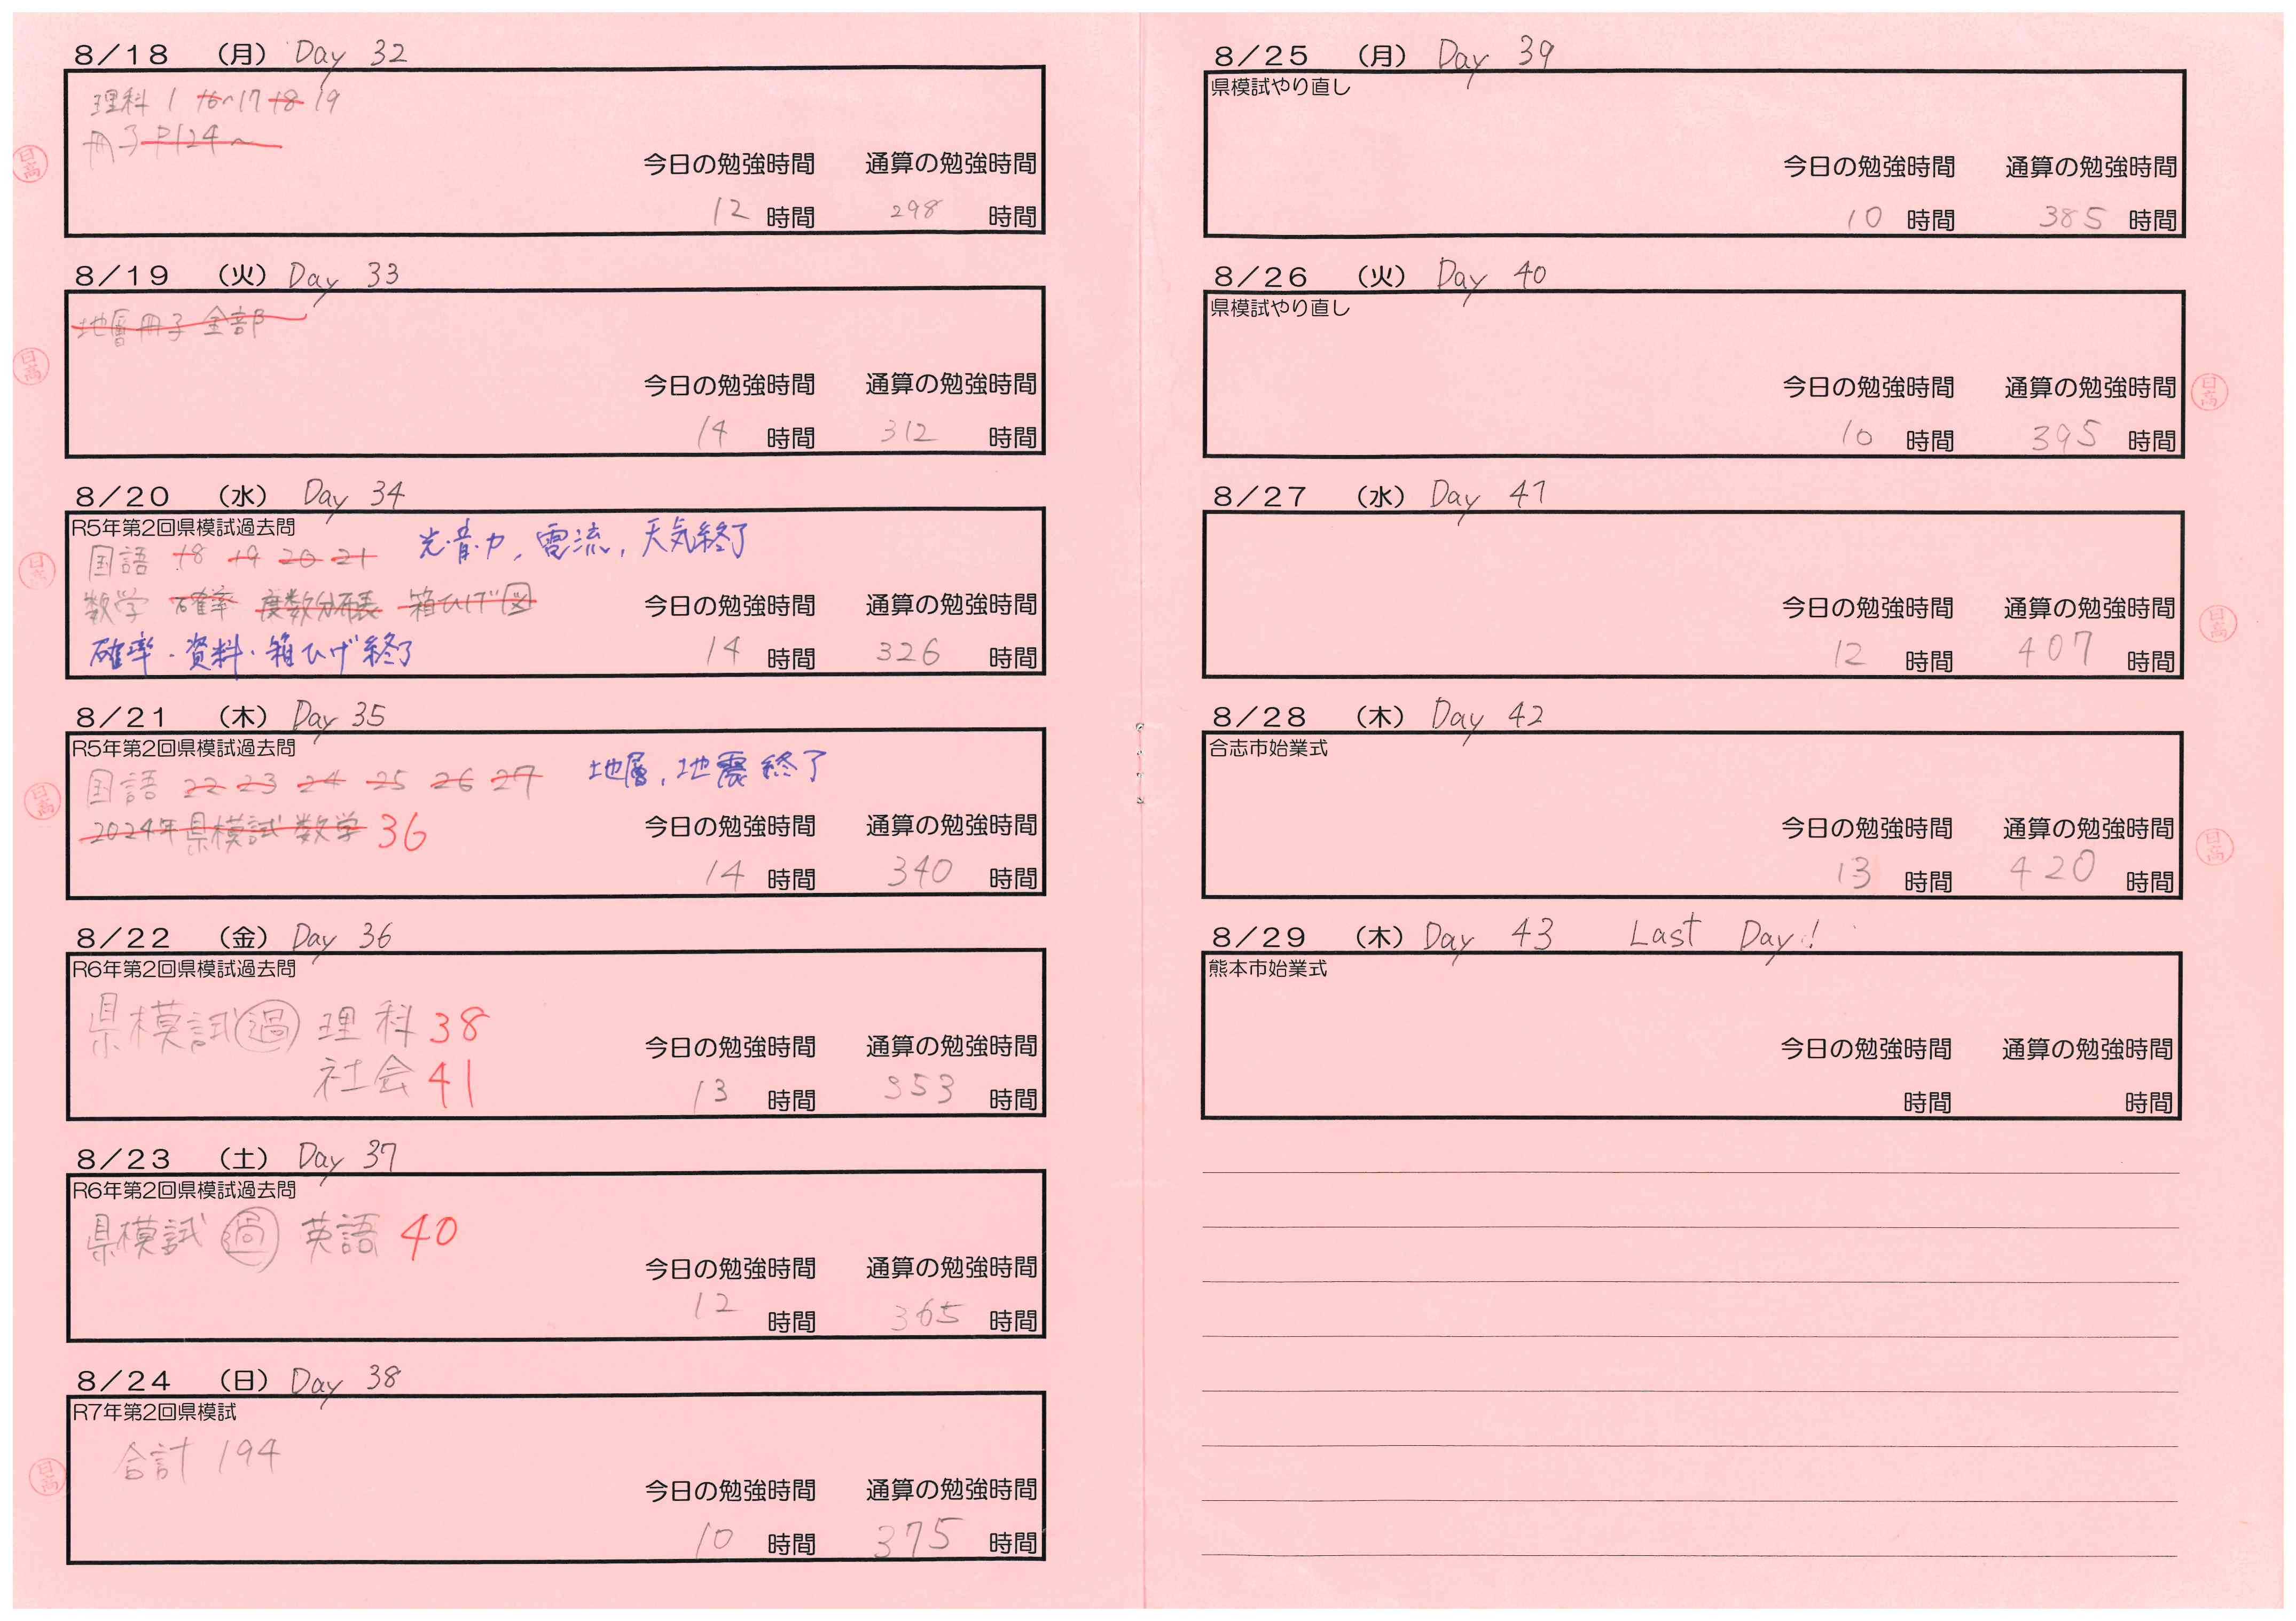 8/18 (月) Day 32
理科 1 16~17 18 19
冊子 P124~
今日の勉強時間 通算の勉強時間
12 時間 298 時間
日高
8/19 (火) Day 33
地層冊子 全部
今日の勉強時間 通算の勉強時間
14 時間 312 時間
日高
8/20 (水) Day 34
R5年第2回県模試過去問
国語 18 19 20 21 光・音・力, 電流, 天気終了
数学 確率 度数分布表 箱ひげ図
今日の勉強時間 通算の勉強時間
確率・資料・箱ひげ終了
14 時間 326 時間
日高
8/21 (木) Day 35
R5年第2回県模試過去問
国語 22 23 24 25 26 27 地層, 地震終了
2024年県模試 数学 36
今日の勉強時間 通算の勉強時間
14 時間 340 時間
日高
8/22 (金) Day 36
R6年第2回県模試過去問
県模試 過 理科 38
社会 41
今日の勉強時間 通算の勉強時間
13 時間 353 時間
8/23 (土) Day 37
R6年第2回県模試過去問
県模試 過 英語 40
今日の勉強時間 通算の勉強時間
12 時間 365 時間
8/24 (日) Day 38
R7年第2回県模試
合計 194
今日の勉強時間 通算の勉強時間
10 時間 375 時間
日高
8/25 (月) Day 39
県模試やり直し
今日の勉強時間 通算の勉強時間
10 時間 385 時間
8/26 (火) Day 40
県模試やり直し
今日の勉強時間 通算の勉強時間
10 時間 395 時間
日高
8/27 (水) Day 41
今日の勉強時間 通算の勉強時間
12 時間 407 時間
日高
8/28 (木) Day 42
合志市始業式
今日の勉強時間 通算の勉強時間
13 時間 420 時間
日高
8/29 (木) Day 43 Last Day!
熊本市始業式
今日の勉強時間 通算の勉強時間
時間 時間